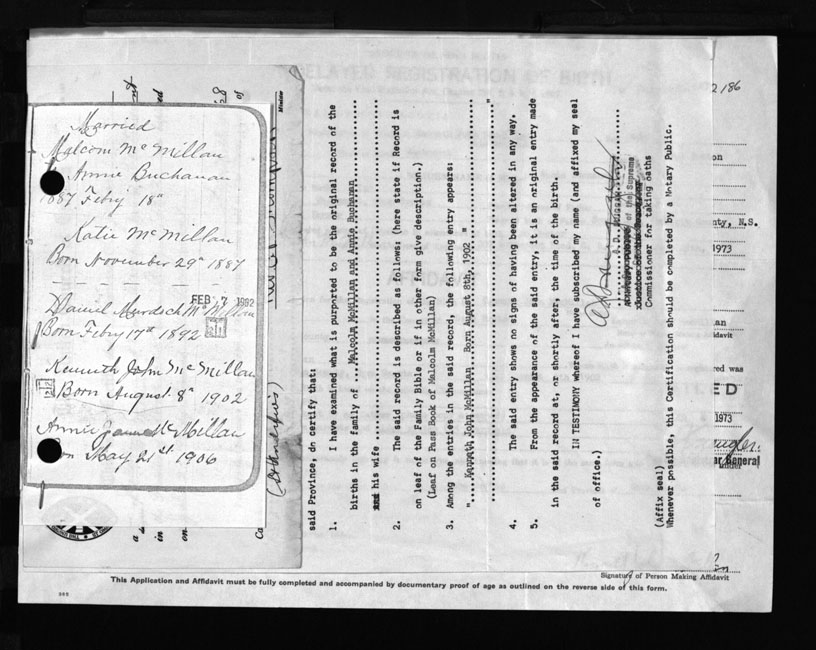 Married
Malcom Mc Millan
Annie Buchanan
1887 Febry 18"
Katie Mc Millan
Born November 29" 1887
FEB 7 1992
Daniel Murdoch Mc Millan
Born Febry 17th 1892
Kenneth John Mc Millan
Born August 8" 1902
Annie Mc Millan
May 21st 1906
said Province, do certify that:
1. I have examined what is purported to be the original record of the
births in the family of ....Malcolm McMillan and Annie Buchanan
and his wife
2. The said record is described as follows: (here state if Record is
on leaf of the Family Bible or if in other form give description.)
(Leaf on Pass Book of Malcolm McMillan)
3. Among the entries in the said record, the following entry appears:
".....Kenneth John McMillan...Born August 8th, 1902 "
"
4. The said entry shows no signs of having been altered in any way.
5. From the appearance of the said entry, it is an original entry made
in the said record at, or shortly after, the time of the birth.
IN TESTIMONY whereof I have subscribed my name (and affixed my seal
of office.)
of the Supreme
Commissioner for taking oaths
(Affix seal)
Whenever possible, this Certification should be completed by a Notary Public.
2 186
on
nty, N.S.
1973
lan
fidavit
red was
ED
1973
ar General
Signature of Person Making Affidavit
This Application and Affidavit must be fully completed and accompanied by documentary proof of age as outlined on the reverse side of this form.